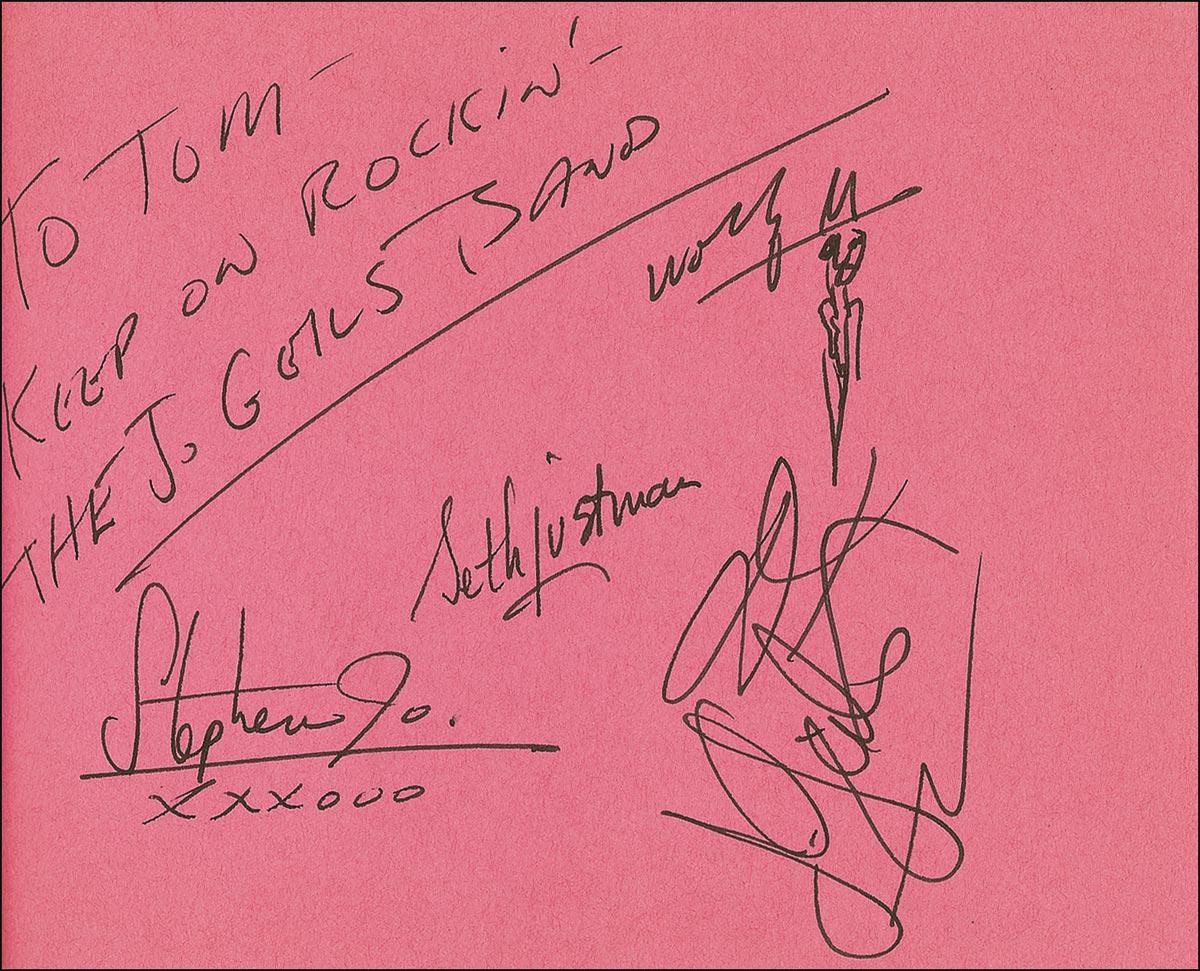 TO TOM -
KEEP ON ROCKIN' -
THE J. GEILS BAND
Wolf
Seth Justman
Stephen Jo.
XXXOOO